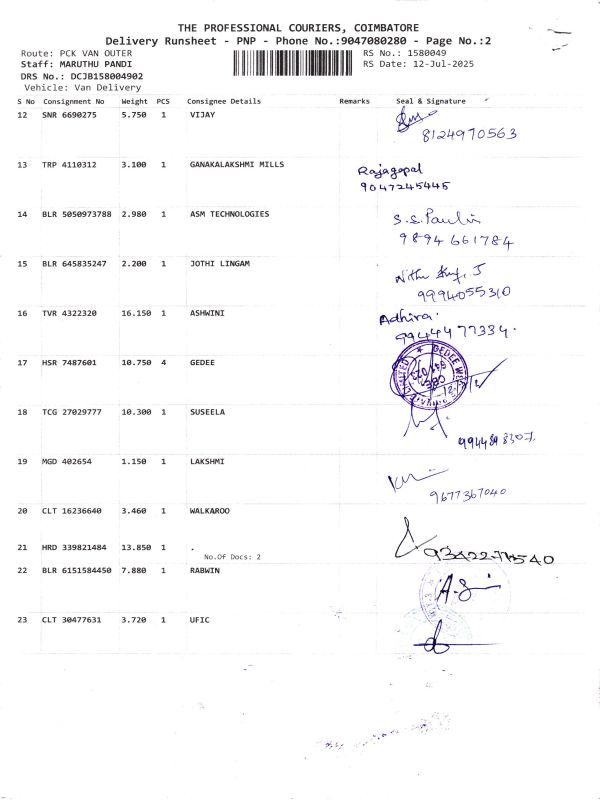 THE PROFESSIONAL COURIERS, COIMBATORE
Delivery Runsheet - PNP - Phone No.:9047080280 - Page No.:2
Route: PCK VAN OUTER
RS No.: 1580049
Staff: MARUTHU PANDI
RS Date: 12-Jul-2025
DRS No.: DCJB158004902
Vehicle: Van Delivery
S No Consignment No Weight PCS Consignee Details Remarks Seal & Signature
12 SNR 6690275 5.750 1 VIJAY
8124970563
13 TRP 4110312 3.100 1 GANAKALAKSHMI MILLS
Rajagopal
9047245445
14 BLR 5050973788 2.980 1 ASM TECHNOLOGIES
9894661784
15 BLR 645835247 2.200 1 JOTHI LINGAM
9994055310
16 TVR 4322320 16.150 1 ASHWINI
Adhira.
9944477334.
17 HSR 7487601 10.750 4 GEDEE
18 TCG 27029777 10.300 1 SUSEELA
19 MGD 402654 1.150 1 LAKSHMI
9677367040
20 CLT 16236640 3.460 1 WALKAROO
21 HRD 339821484 13.850 1 .
No.Of Docs: 2
22 BLR 6151584450 7.880 1 RABWIN
23 CLT 30477631 3.720 1 UFIC